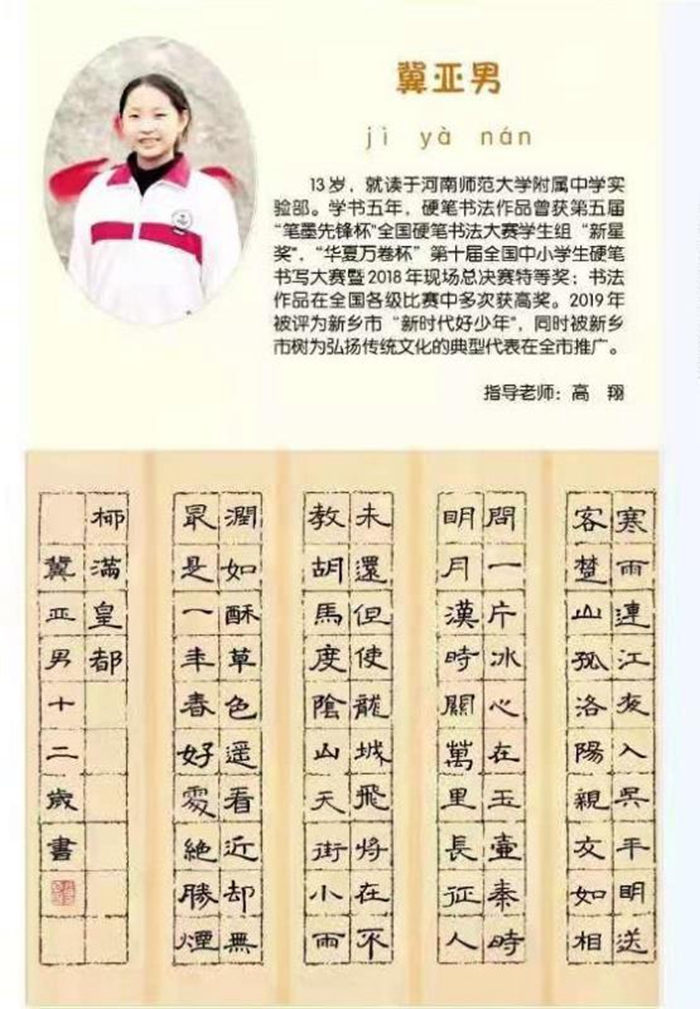 冀亚男
jì yà nán
13岁，就读于河南师范大学附属中学实
验部。学书五年，硬笔书法作品曾获第五届
“笔墨先锋杯”全国硬笔书法大赛学生组“新星
奖”，“华夏万卷杯”第十届全国中小学生硬笔
书写大赛暨2018年现场总决赛特等奖；书法
作品在全国各级比赛中多次获高奖。2019年
被评为新乡市“新时代好少年”，同时被新乡
市树为弘扬传统文化的典型代表在全市推广。
指导老师：高 翔
寒雨連江夜入吳平明送
客楚山孤洛陽親友如相
問一片冰心在玉壺秦時
明月漢時關萬里長征人
未還但使龍城飛將在不
教胡馬度陰山天街小雨
潤如酥草色遥看近却無
最是一年春好處絶勝煙
柳滿皇都
冀亚男十二歲書